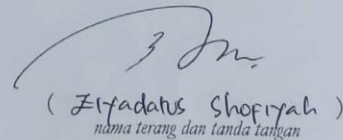 ( Ziyadatus Shofiyah )
nama terang dan tanda tangan